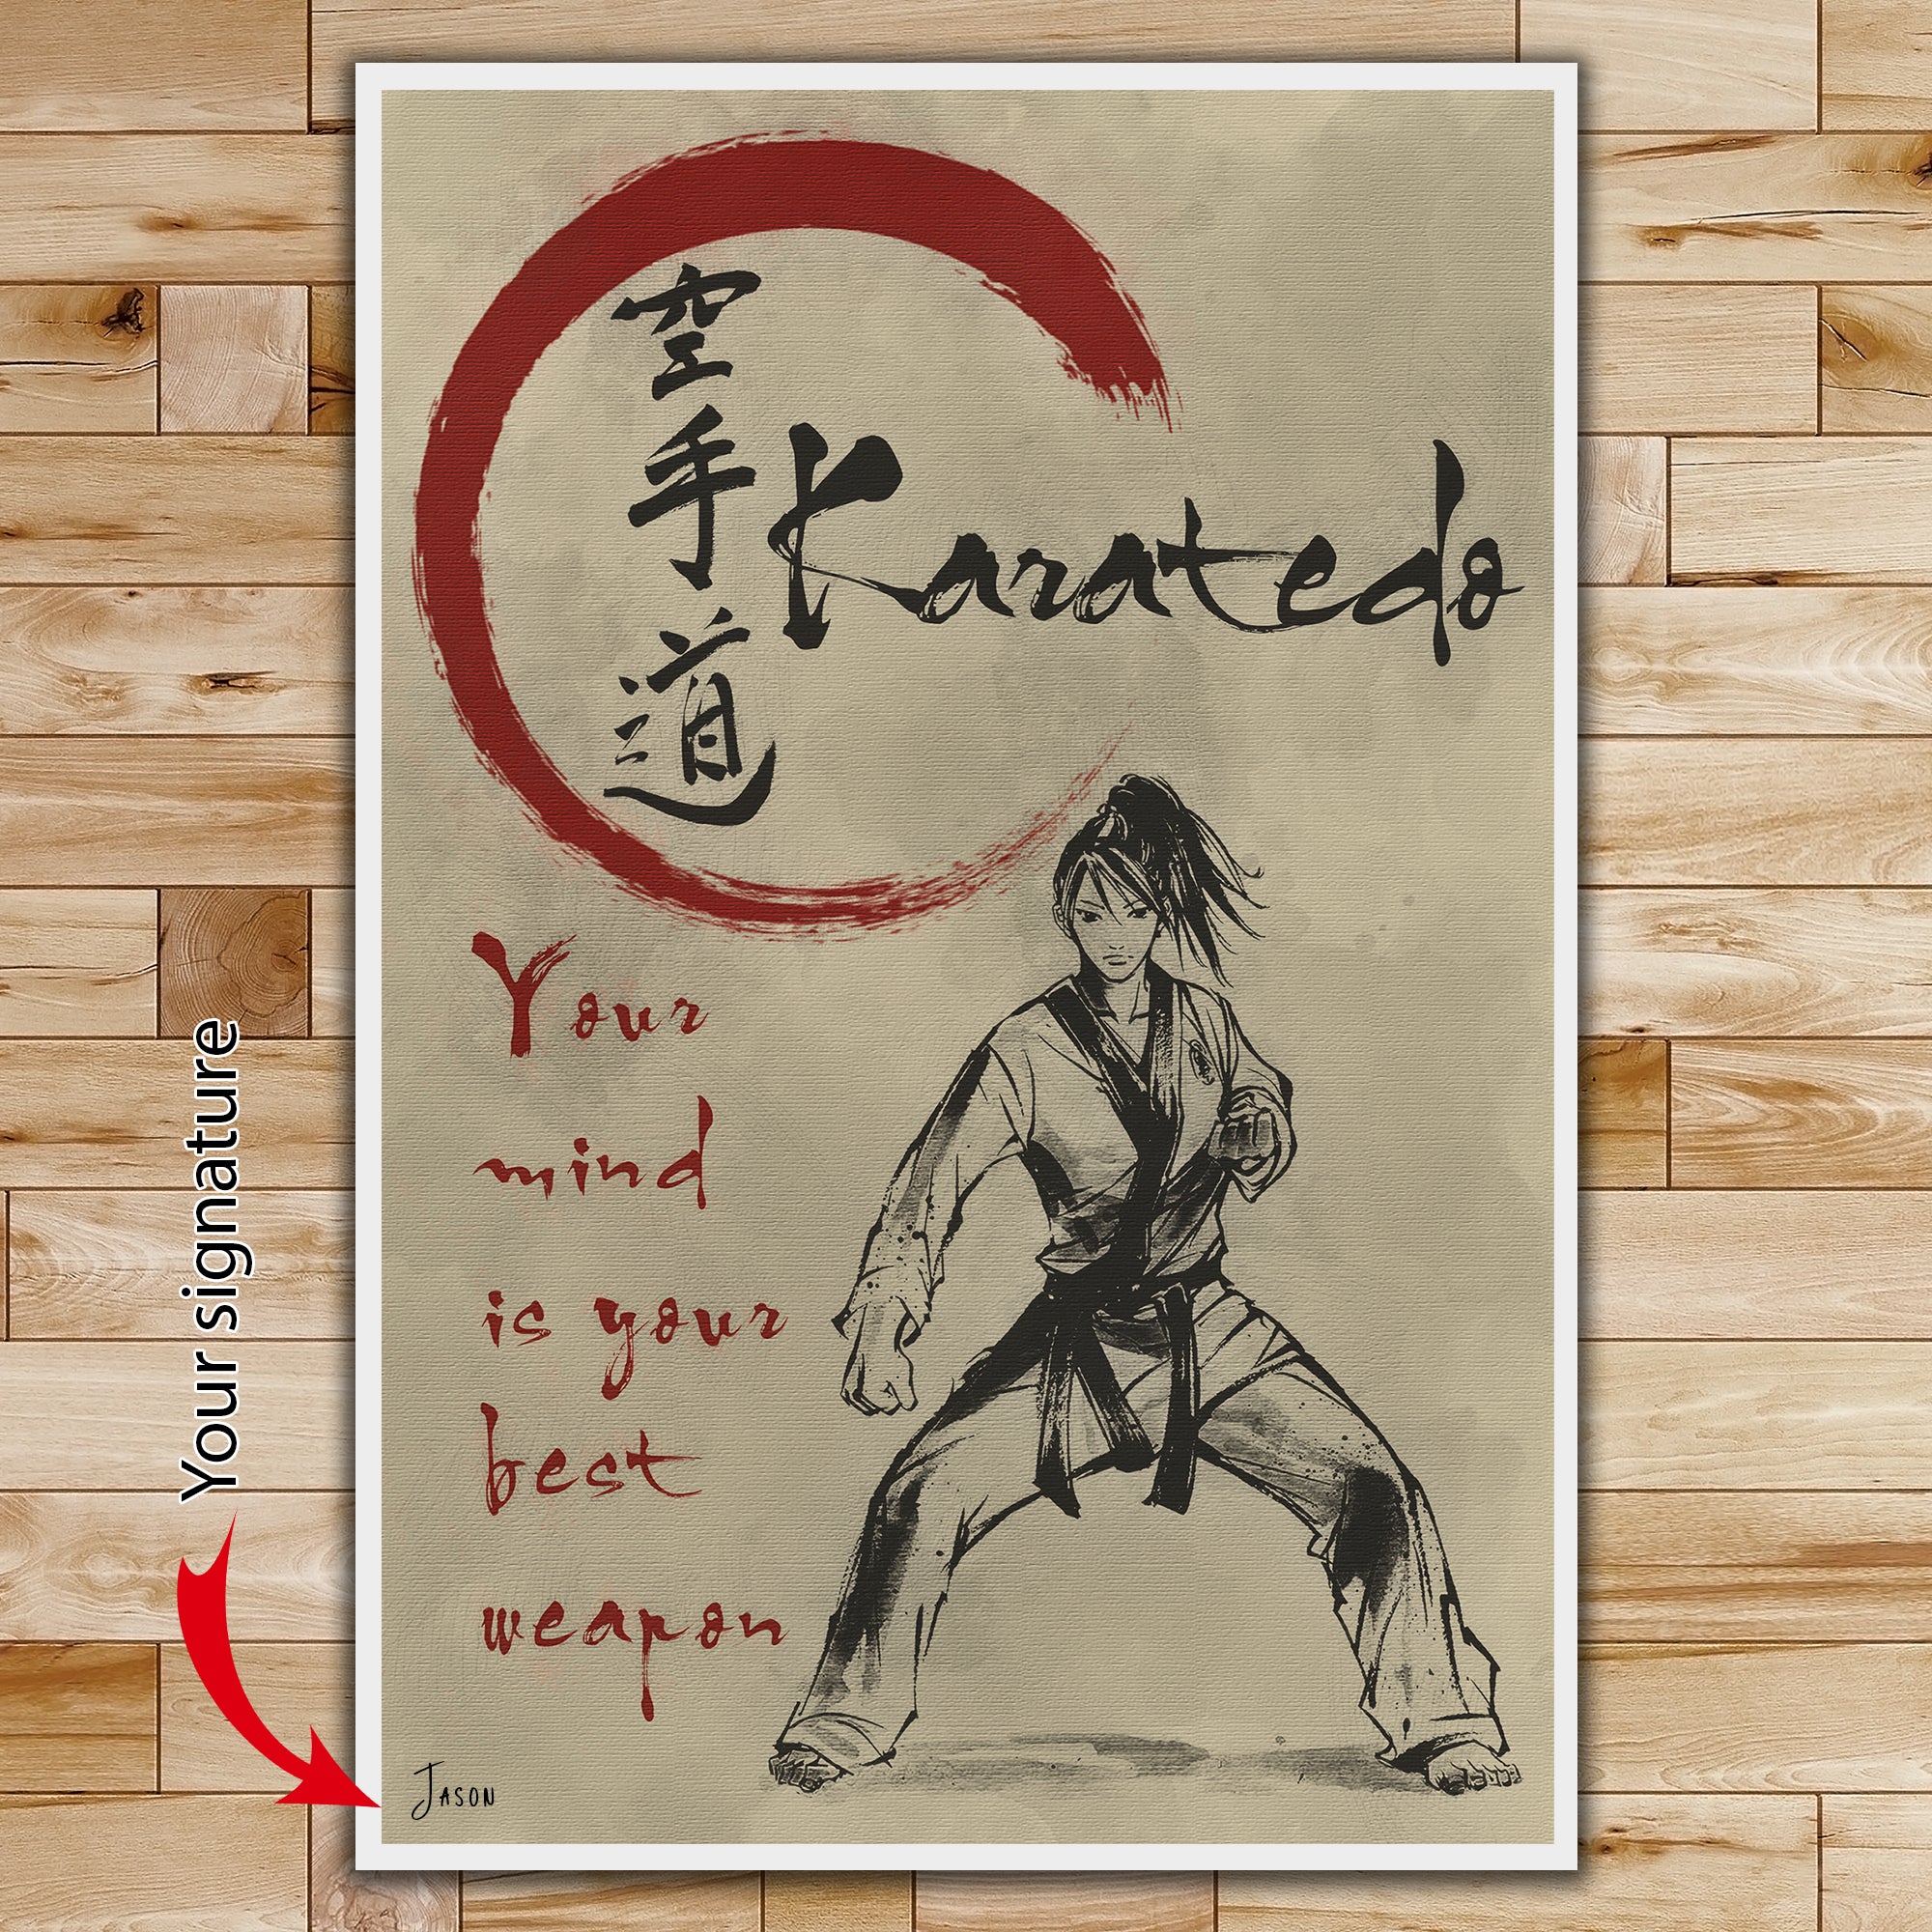 空手道
Karatedo
Your
mind
is your
best
weapon
Your signature
Jason